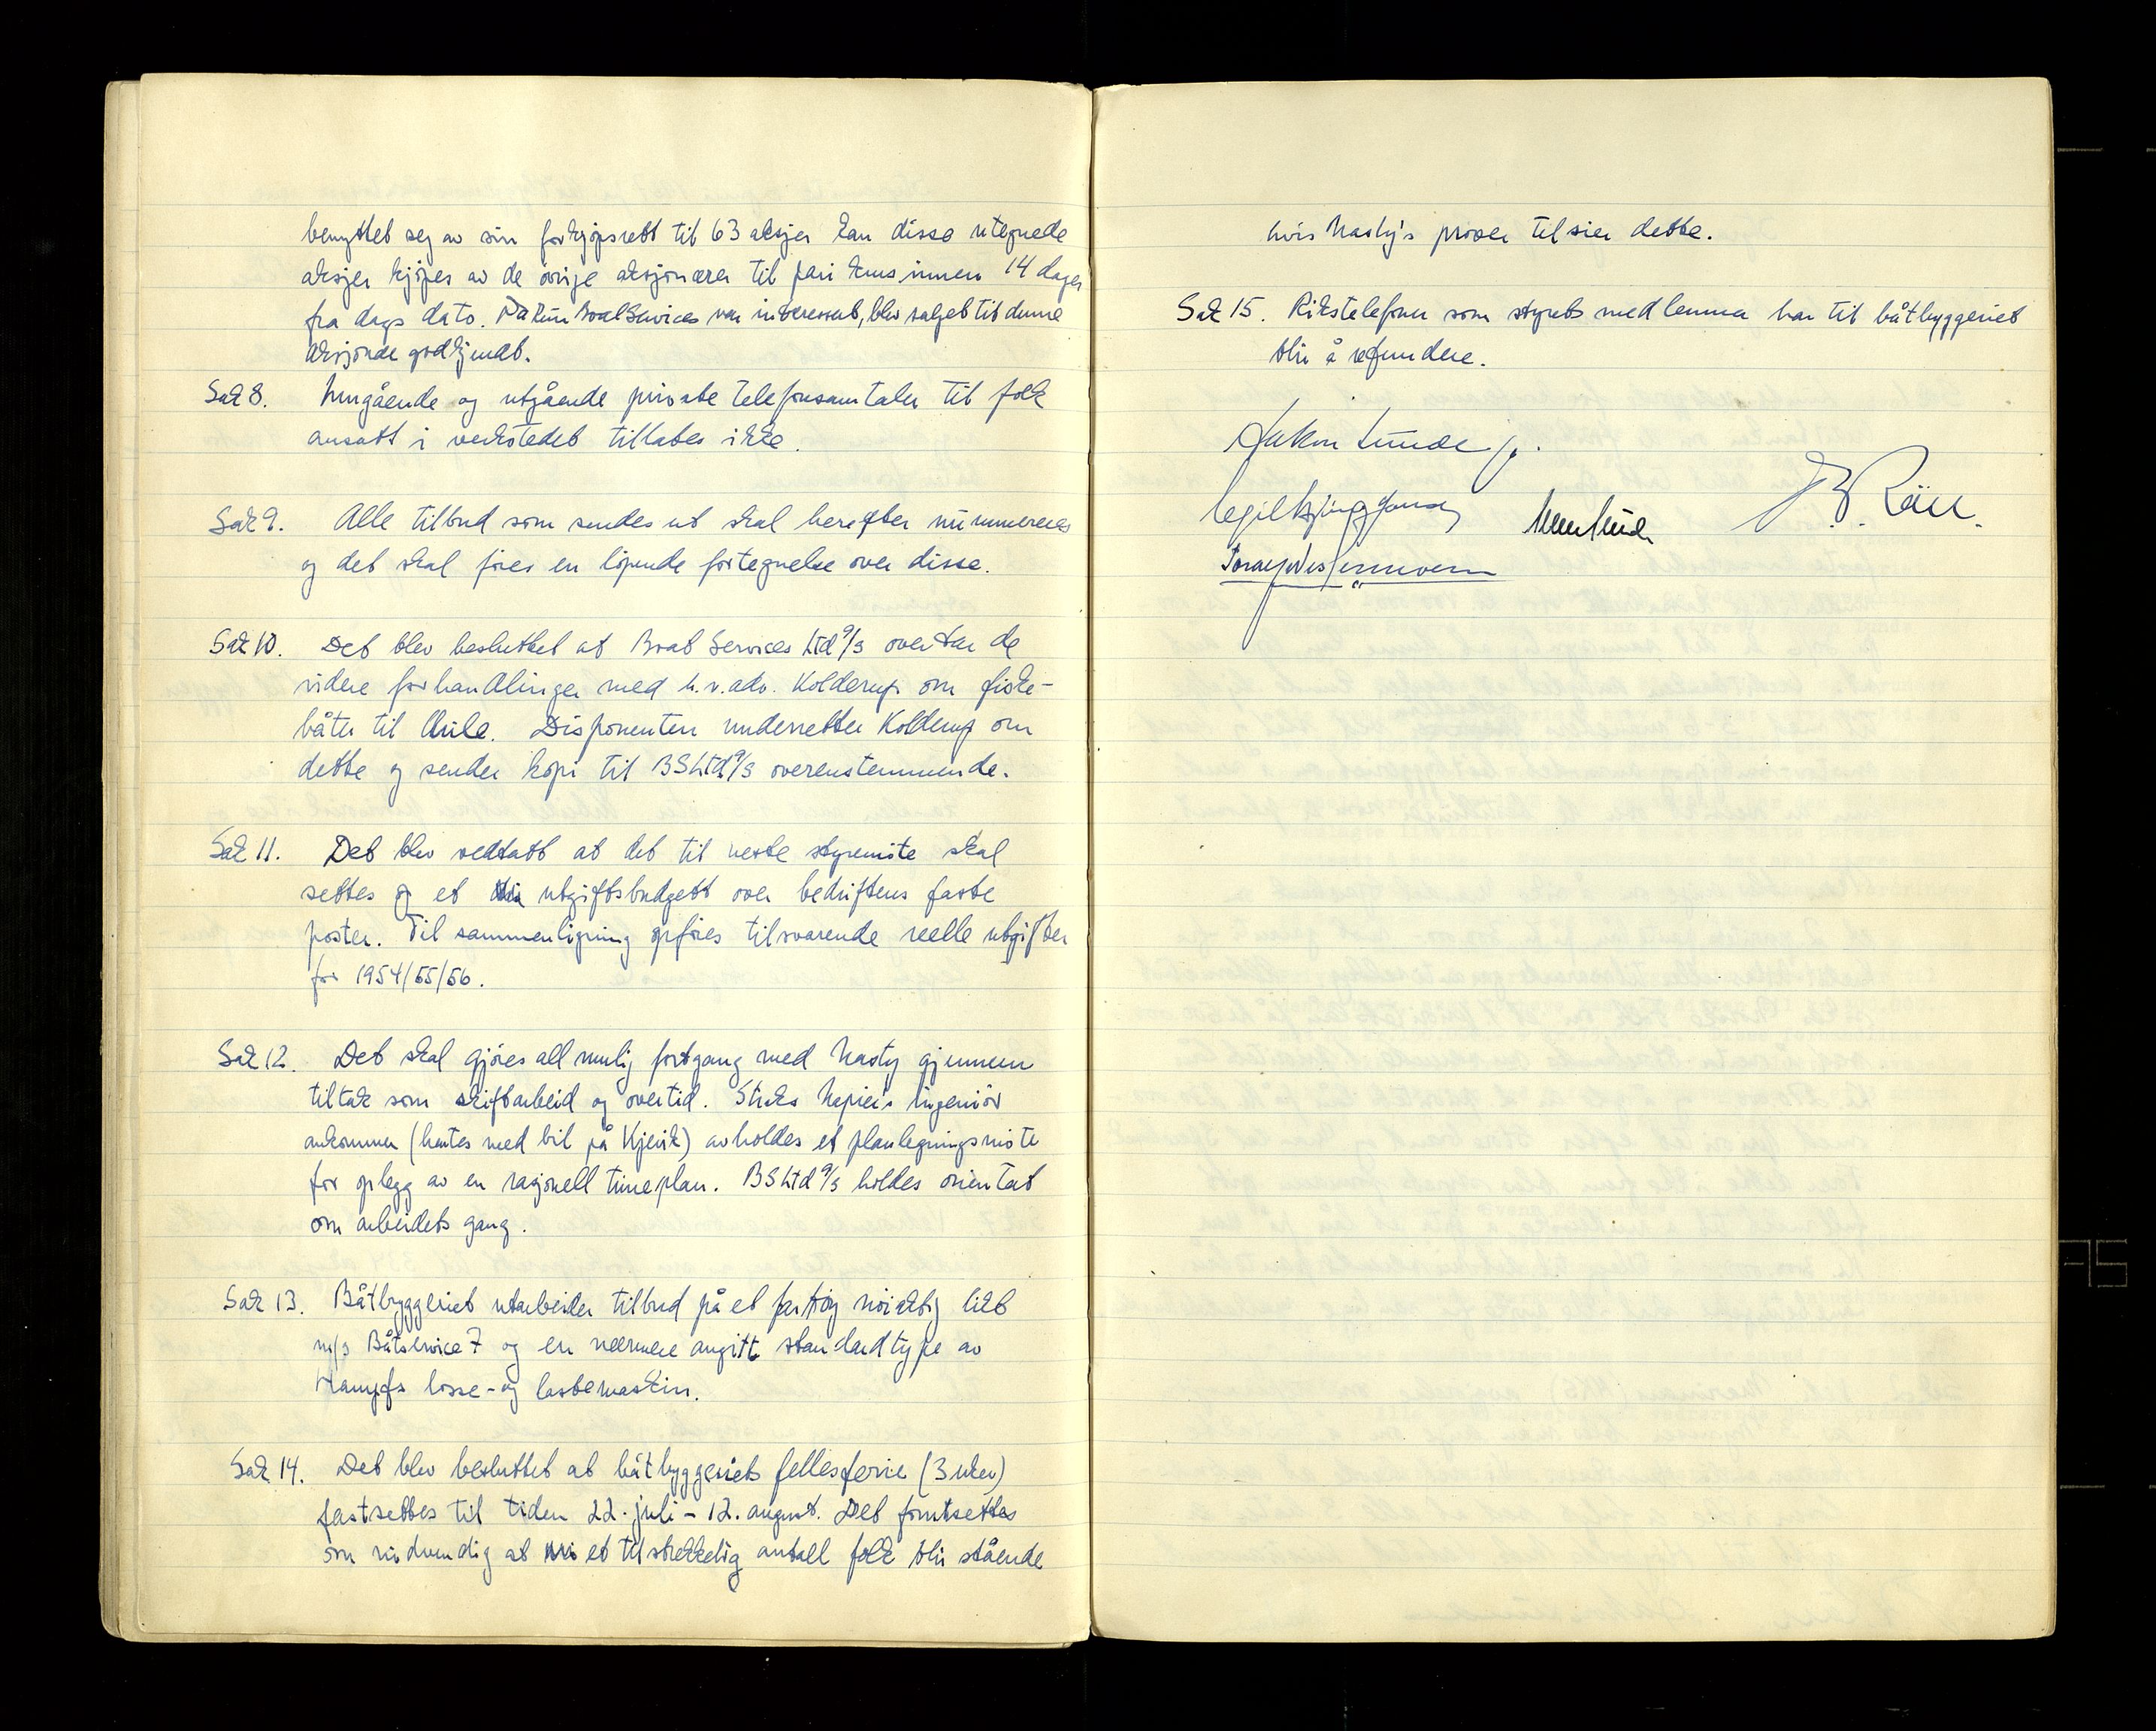 benyttet seg av sin forkjøpsrett til 63 aksjer kan disse utegnede
aksjer kjøpes av de övrige aksjonærer til pari kurs innen 14 dager
fra dags dato. Da kun Boat Services var interessert, blev salget til denne
aksjonær godkjendt.
Sak 8. Inngående og utgående private telefonsamtaler til folk
ansatt i verkstedet tillates ikke.
Sak 9. Alle tilbud som sendes ut skal herefter nummereres
og det skal föres en löpende fortegnelse over disse.
Sak 10. Det blev besluttet at Boat Services Ltd A/S overtar de
videre forhandlinger med h.r.adv. Kolderup om fiske-
båter til Chile. Disponenten underretter Kolderup om
dette og sender kopi til BSLtd A/S overenstemmende.
Sak 11. Det blev vedtatt at det til neste styremöte skal
settes op et utgiftsbudgett over bedriftens faste
poster. Til sammenligning opföres tilsvarende reelle utgifter
for 1954/55/56.
Sak 12. Det skal gjöres all mulig fortgang med Nasty gjennem
tiltak som skiftarbeid og overtid. Straks Napier's ingeniör
ankommer (hentes med bil på Kjevik) avholdes et planlegningsmöte
for oplegg av en rasjonell timeplan. BSLtd A/S holdes orientert
om arbeidets gang.
Sak 13. Båtbyggeriet utarbeider tilbud på et fartöy nöiaktig likt
m/s Båtservice 7 og en nærmere angitt standardtype av
losse- og lastemaskin.
Sak 14. Det blev besluttet at båtbyggeriets fellesferie (3 uker)
fastsettes til tiden 22. juli - 12. august. Det forutsettes
som nödvendig at et tilstrekkelig antall folk blir stående
hvis Nasty's pröver tilsier dette.
Sak 15. Rikstelefoner som styrets medlemmer har til båtbyggeriet
blir å refundere.
Håkon Lunde jr.